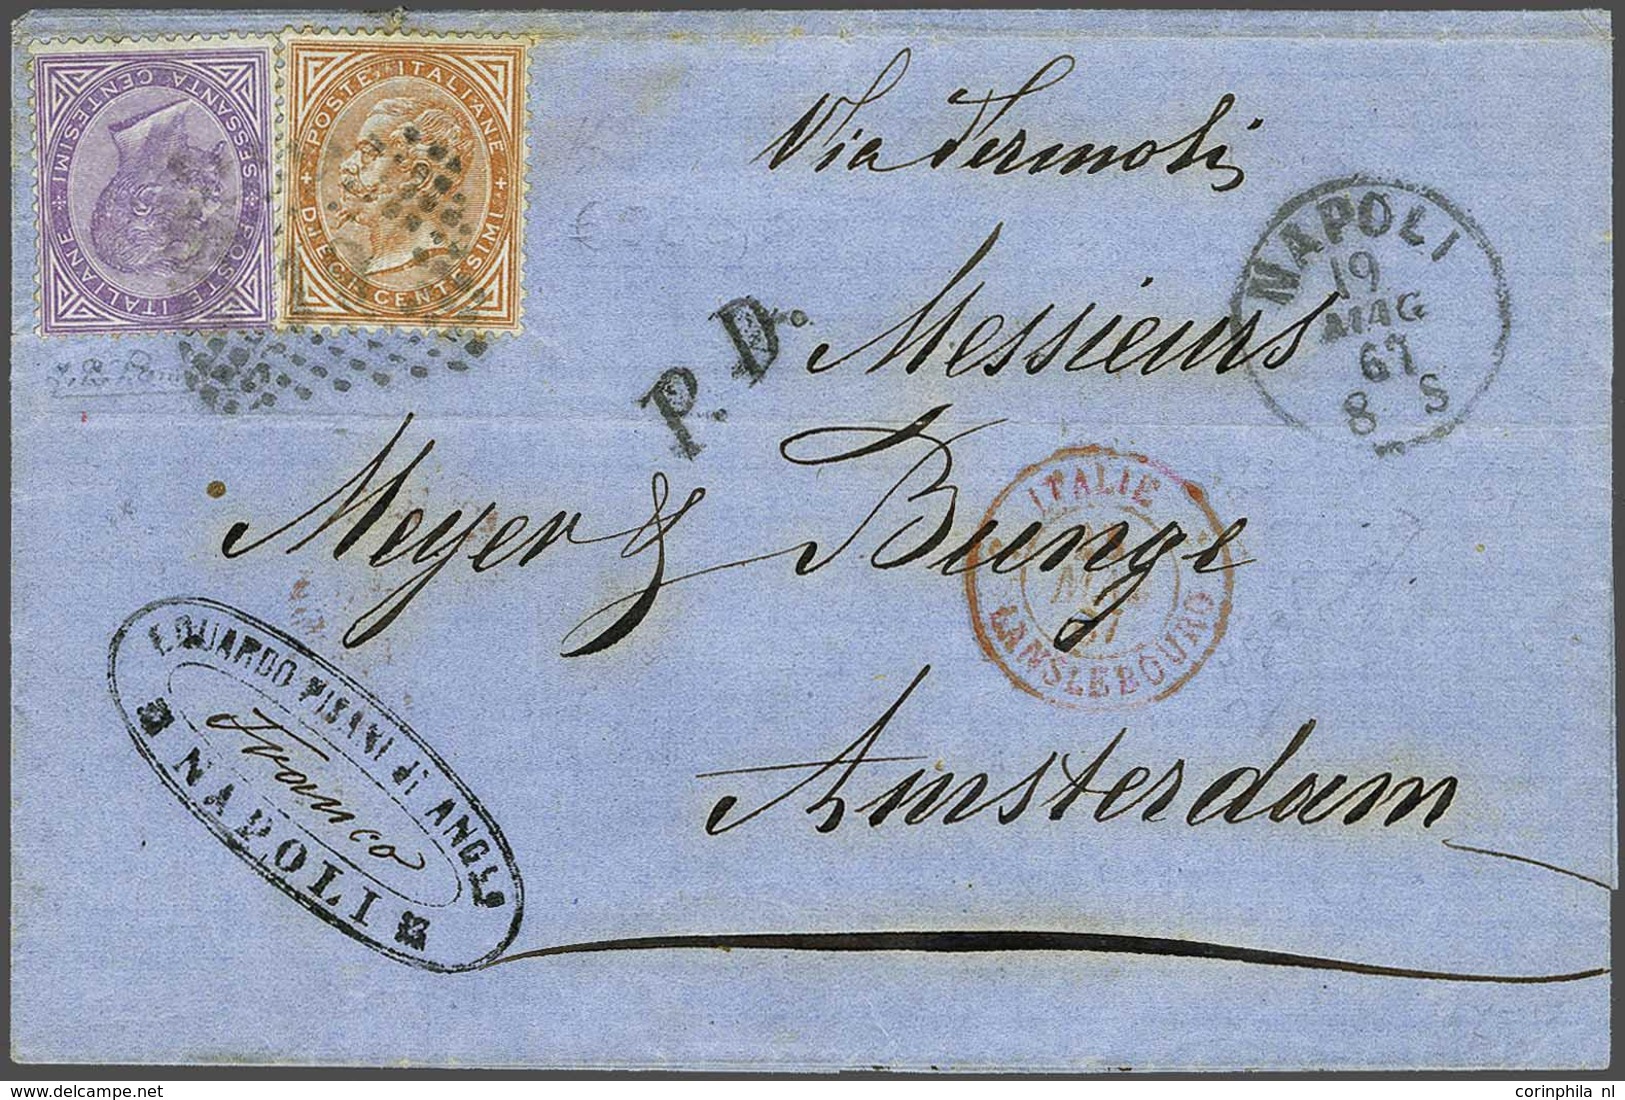 POSTE ITALIANE
SESSANTA CENTESIMI
POSTE ITALIANE
DIECI CENTESIMI
Via Termoli
NAPOLI
19
MAG
67
8 S
P.D.
Messieurs
Meyer & Bunge
Amsterdam
ITALIE
LANSLEBOURG
EDUARDO PISANI di ANGLO
Franco
NAPOLI
corinphila nl